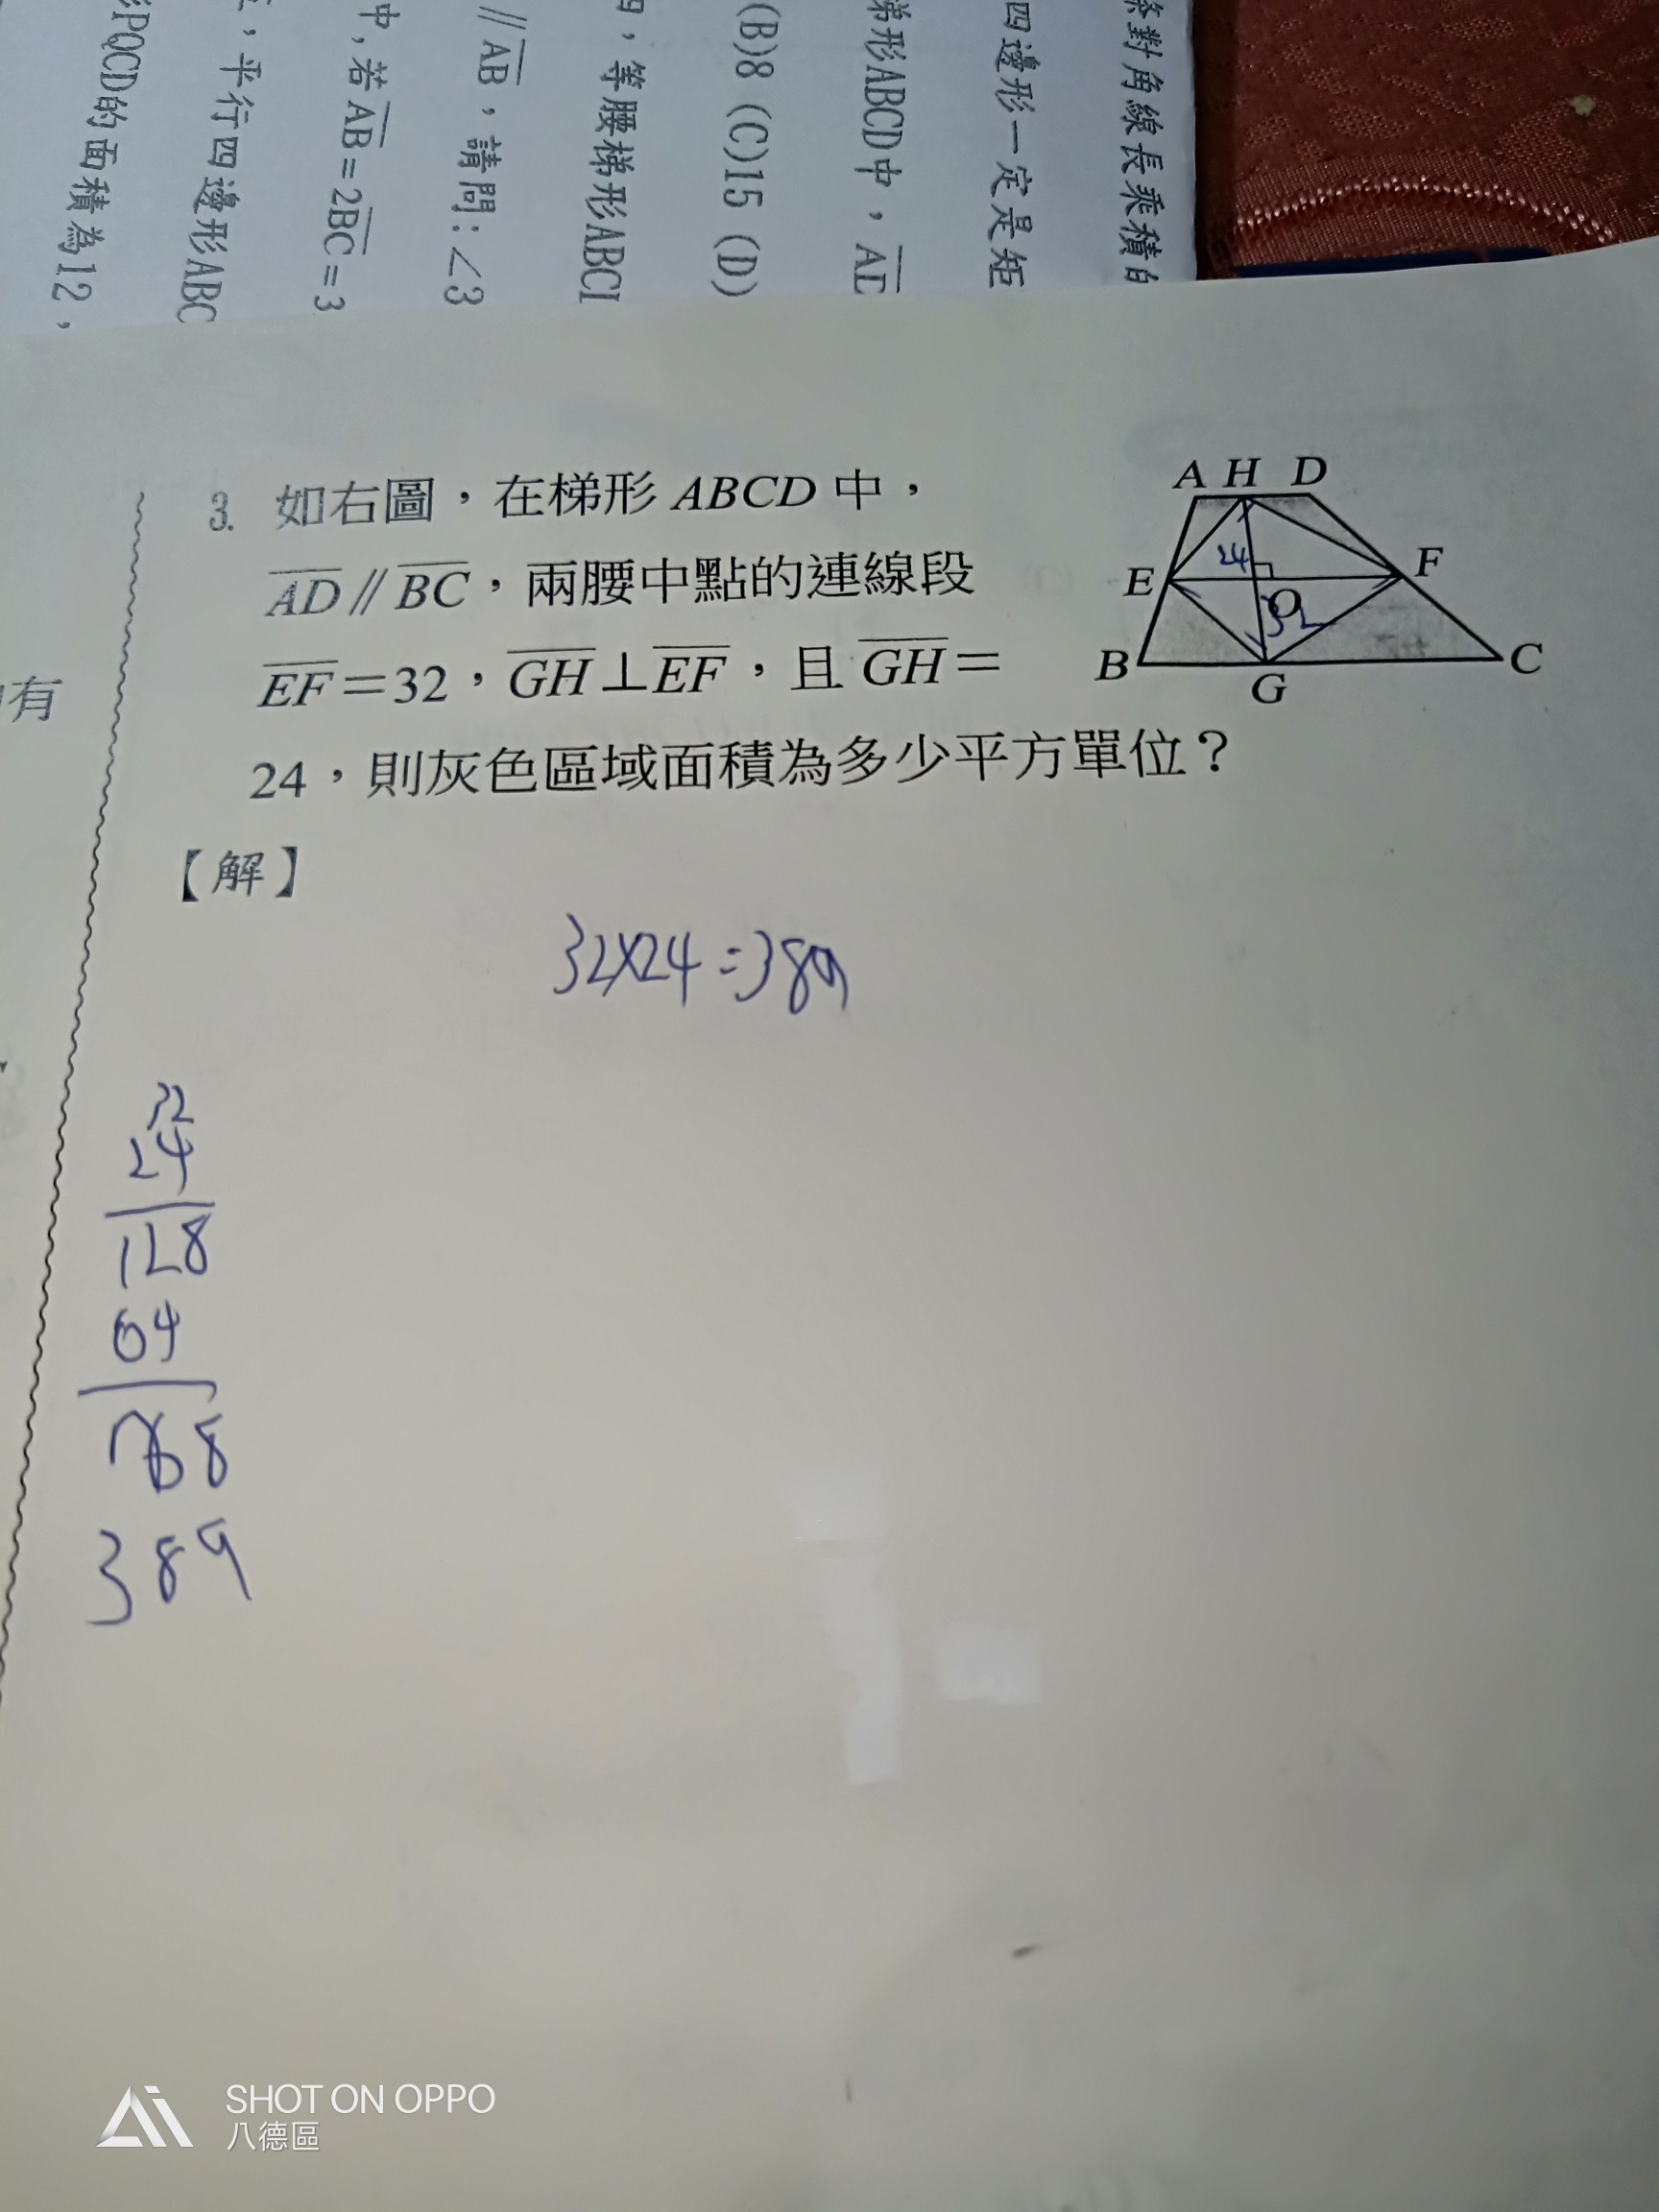 條對角線長乘積的
四邊形一定是矩
梯形ABCD中，AD
(B)8 (C)15 (D)
四，等腰梯形ABCD
∥AB，請問：∠3
中，若AB=2BC=3
，平行四邊形ABC
形PQCD的面積為12，
有
3. 如右圖，在梯形 ABCD 中，
AD∥BC，兩腰中點的連線段
EF＝32，GH⊥EF，且 GH＝
24，則灰色區域面積為多少平方單位？
【解】
A H D
E F
24
O
32
B G C
32×24=389
32
24
128
64
768
389
SHOT ON OPPO
八德區